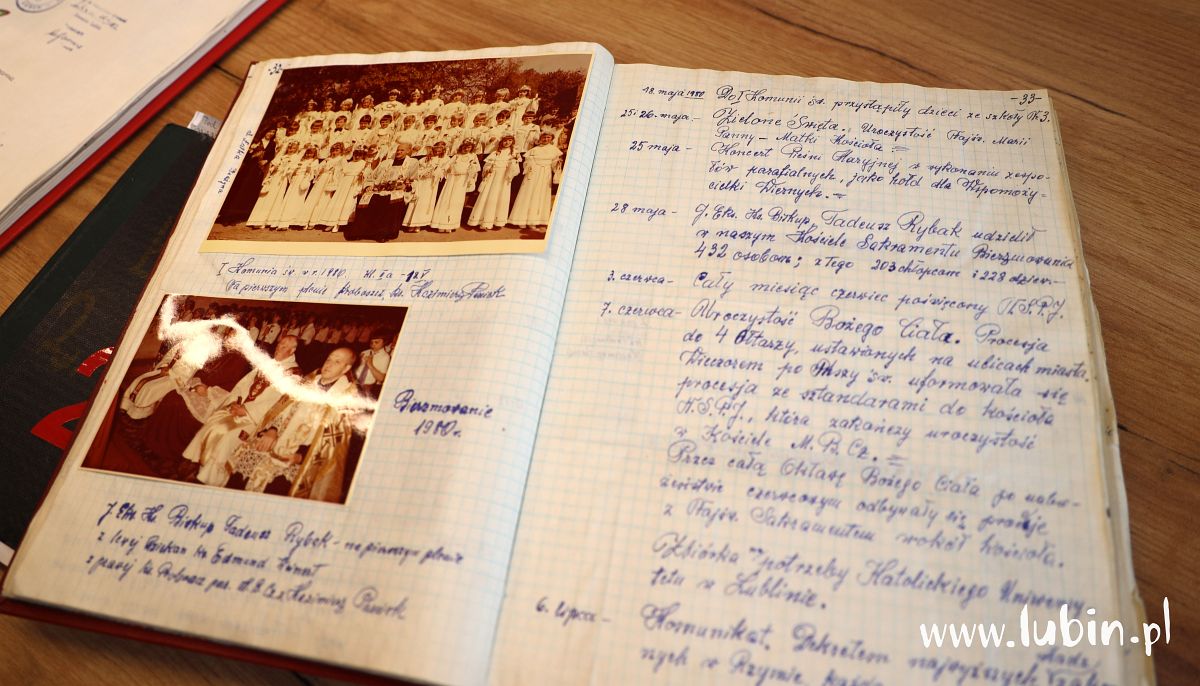 -32-
I Komunia św. w r. 1980. kl. II a
Na pierwszym planie Proboszcz ks. Kazimierz
Bierzmowanie
1980 r.
J. Eks. Ks. Biskup Tadeusz Rybak - na pierwszym planie
z lewej Dziekan ks. Edmund
z prawej ks. Proboszcz par. M.B.Cz. Kazimierz
-33-
18. maja 1980 Do I Komunii św. przystąpiły dzieci ze szkoły Nr 3.
25 i 26. maja - Zielone Święta. Uroczystość Najśw. Marii
Panny - Matki Kościoła =
25 maja - Koncert Pieśni Maryjnej w wykonaniu zespo-
łów parafialnych, jako hołd dla Wspomoży-
cielki Wiernych. =
28 maja - J. Eks. Ks. Biskup, Tadeusz Rybak udzielił
w naszym Kościele Sakramentu Bierzmowania
432 osobom; z tego 203 chłopcom i 228 dziew-
3. czerwca - Cały miesiąc czerwiec poświęcony N.S.P.J.
7. czerwca - Uroczystość Bożego Ciała. Procesja
do 4 Ołtarzy, ustawianych na ulicach miasta.
Wieczorem po Mszy św. uformowała się
procesja ze sztandarami do kościoła
N.S.P.J., która zakończy uroczystość
w Kościele M.B.Cz. =
Przez całą Oktawę Bożego Ciała po nabo-
żeństwie czerwcowym odbywały się procesje
z Najśw. Sakramentem wokół kościoła.
Zbiórka na potrzeby Katolickiego Uniwersy-
tetu w Lublinie.
6. lipca - Komunikat. Dekretem najwyższych władz
nych w Rzymie,
www.lubin.pl